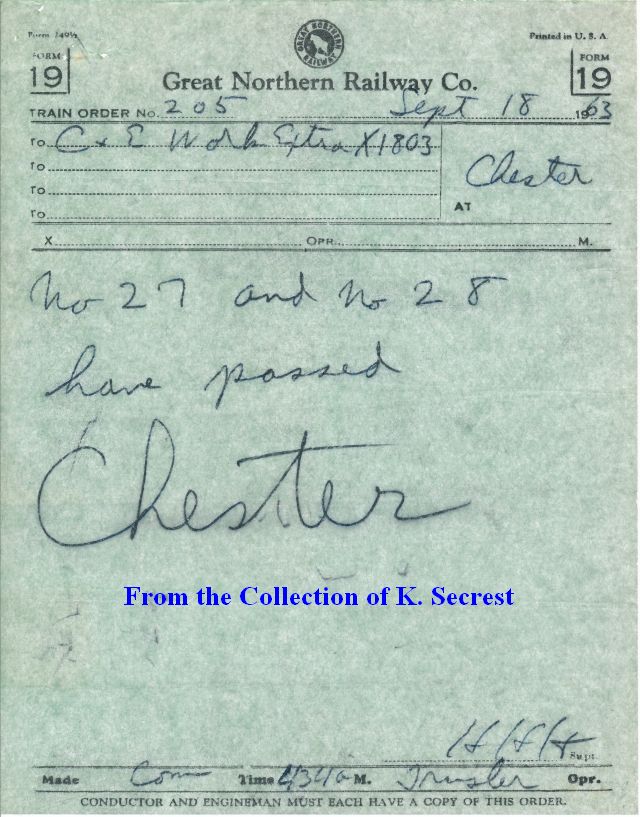 Form 149½
Printed in U. S. A.
GREAT NORTHERN RAILWAY
FORM 19
FORM 19
Great Northern Railway Co.
TRAIN ORDER No. 205 Sept 18 1963
To C & E Work Extra X1803
To
To
To
Chester
AT
X OPR. M.
No 27 and No 28
have passed
Chester
From the Collection of K. Secrest
HHH
Supt.
Made Com Time 434a M. Opr.
CONDUCTOR AND ENGINEMAN MUST EACH HAVE A COPY OF THIS ORDER.